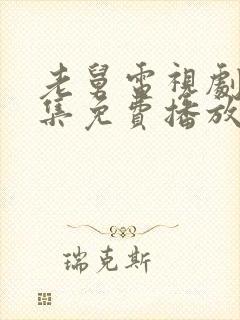 老舅電視劇
集免費播放
瑞克斯